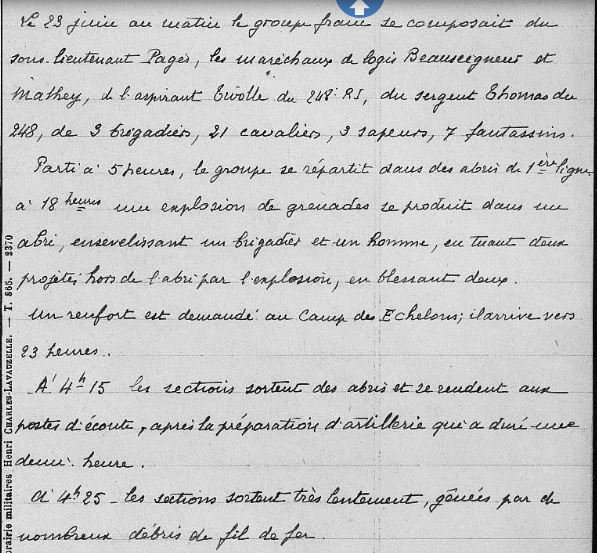 Le 23 juin au matin le groupe franc se composait du
sous-lieutenant Pagès, les maréchaux de logis Beauseigneur et
Mathey, de l'aspirant du 248e RI, du sergent Thomas du
248, de 3 brigadiers, 21 cavaliers, 3 sapeurs, 7 fantassins.
Parti à 5 heures, le groupe se répartit dans des abris de 1ère ligne
à 18 heures une explosion de grenades se produit dans un
abri, ensevelissant un brigadier et un homme, en tuant deux
projetés hors de l'abri par l'explosion, en blessant deux.
Un renfort est demandé au Camp des Echelons; il arrive vers
23 heures.
A 4h15 les sections sortent des abris et se rendent aux
postes d'écoute, après la préparation d'artillerie qui a duré une
demi-heure.
A 4h25 - les sections sortent très lentement, gênées par de
nombreux débris de fil de fer.
brairie militaires Henri CHARLES-LAVAUZELLE. — T. 865. — 2370